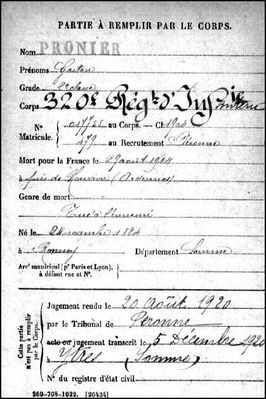 PARTIE À REMPLIR PAR LE CORPS.
Nom PRONIER
Prénoms Gaston
Grade 2e classe
Corps 320e Régt d'Infanterie
N° 017755 au Corps. — Cl. 1904
Matricule. 479 au Recrutement Péronne
Mort pour la France le 29 août 1914
à près de (Ardennes)
Genre de mort
Tué à l'ennemi
Né le 24 novembre 1884
à Département Somme
Arr' municipal (pr Paris et Lyon), à défaut rue et N°.
Cette partie n'est pas à remplir par le Corps.
Jugement rendu le 20 Août 1920
par le Tribunal de Péronne
acte ou jugement transcrit le 5 Décembre 1920
à Ytres (Somme)
N° du registre d'état civil
269-708-1922. [26434]